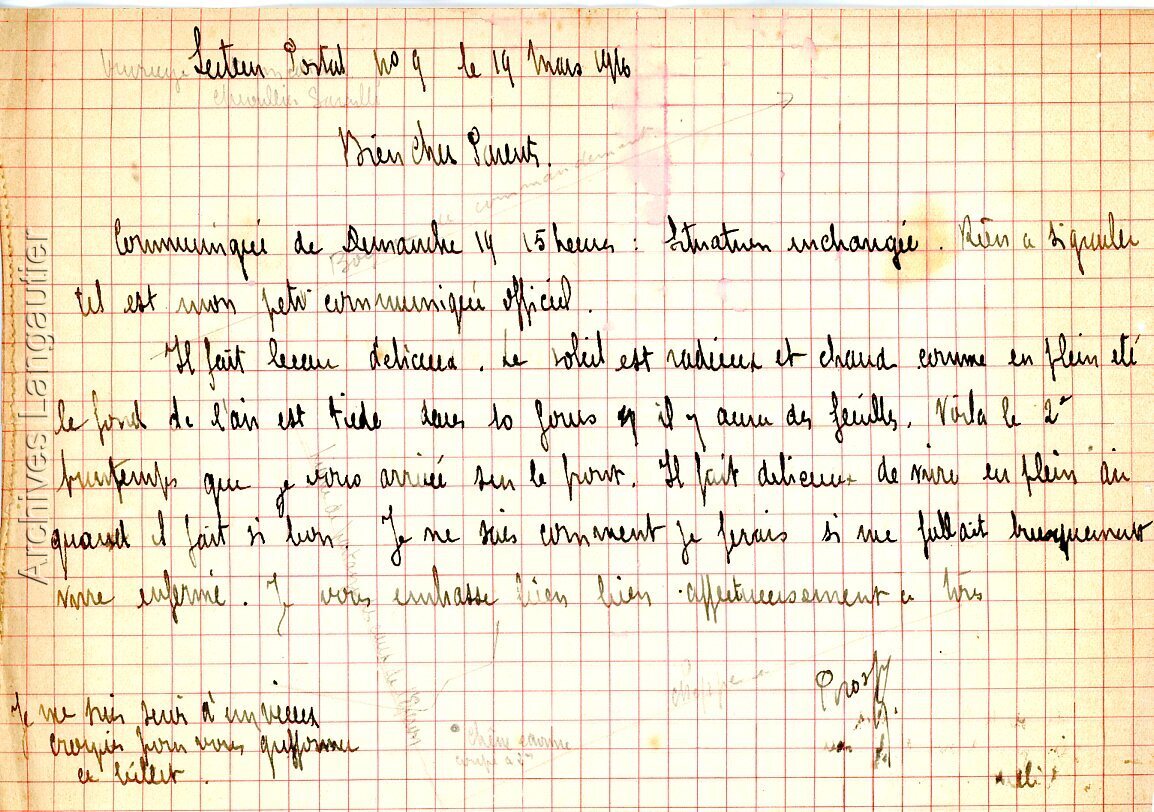 Secteur Postal no 9 le 19 Mars 1916
Bien Chers Parents.
commandement
Communiqué de Dimanche 19 15 heures : Situation inchangée. Rien a signaler
tel est mon petit communiqué officiel.
Il fait beau délicieux. Le soleil est radieux et chaud comme en plein eté
le fond de l'air est tiede dans 10 jours il y aura des feuilles. Voila le 2e
printemps que je vois arrivé sur le front. Il fait delicieux de vivre en plein air
quand il fait si bon. Je ne sais comment je ferais si me fallait brusquement
vivre enfermé. Je vous embrasse bien bien affectueusement a tous
Je me suis servi d'un vieux
croquis pour vous
ce billet.
Archives Langautier